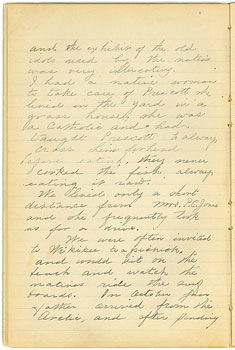 and the exhibit of the old
idols used by the natives
was very interesting.
I had a native woman
to take care of Prescott she
lived in the yard in a
grass house, she was
a Catholic and had
taught Prescott to always
cross his forehead
before eating. They never
cooked the fish, always
eating it raw.
We lived only a short
distance from Mrs. P.C. Jones
and she frequently took
us for a drive.
We were often invited
to Wikikee to a picnic,
and would sit on the
beach and watch the
natives ride the surf
boards. In October
father arrived from the
Arctic, and after